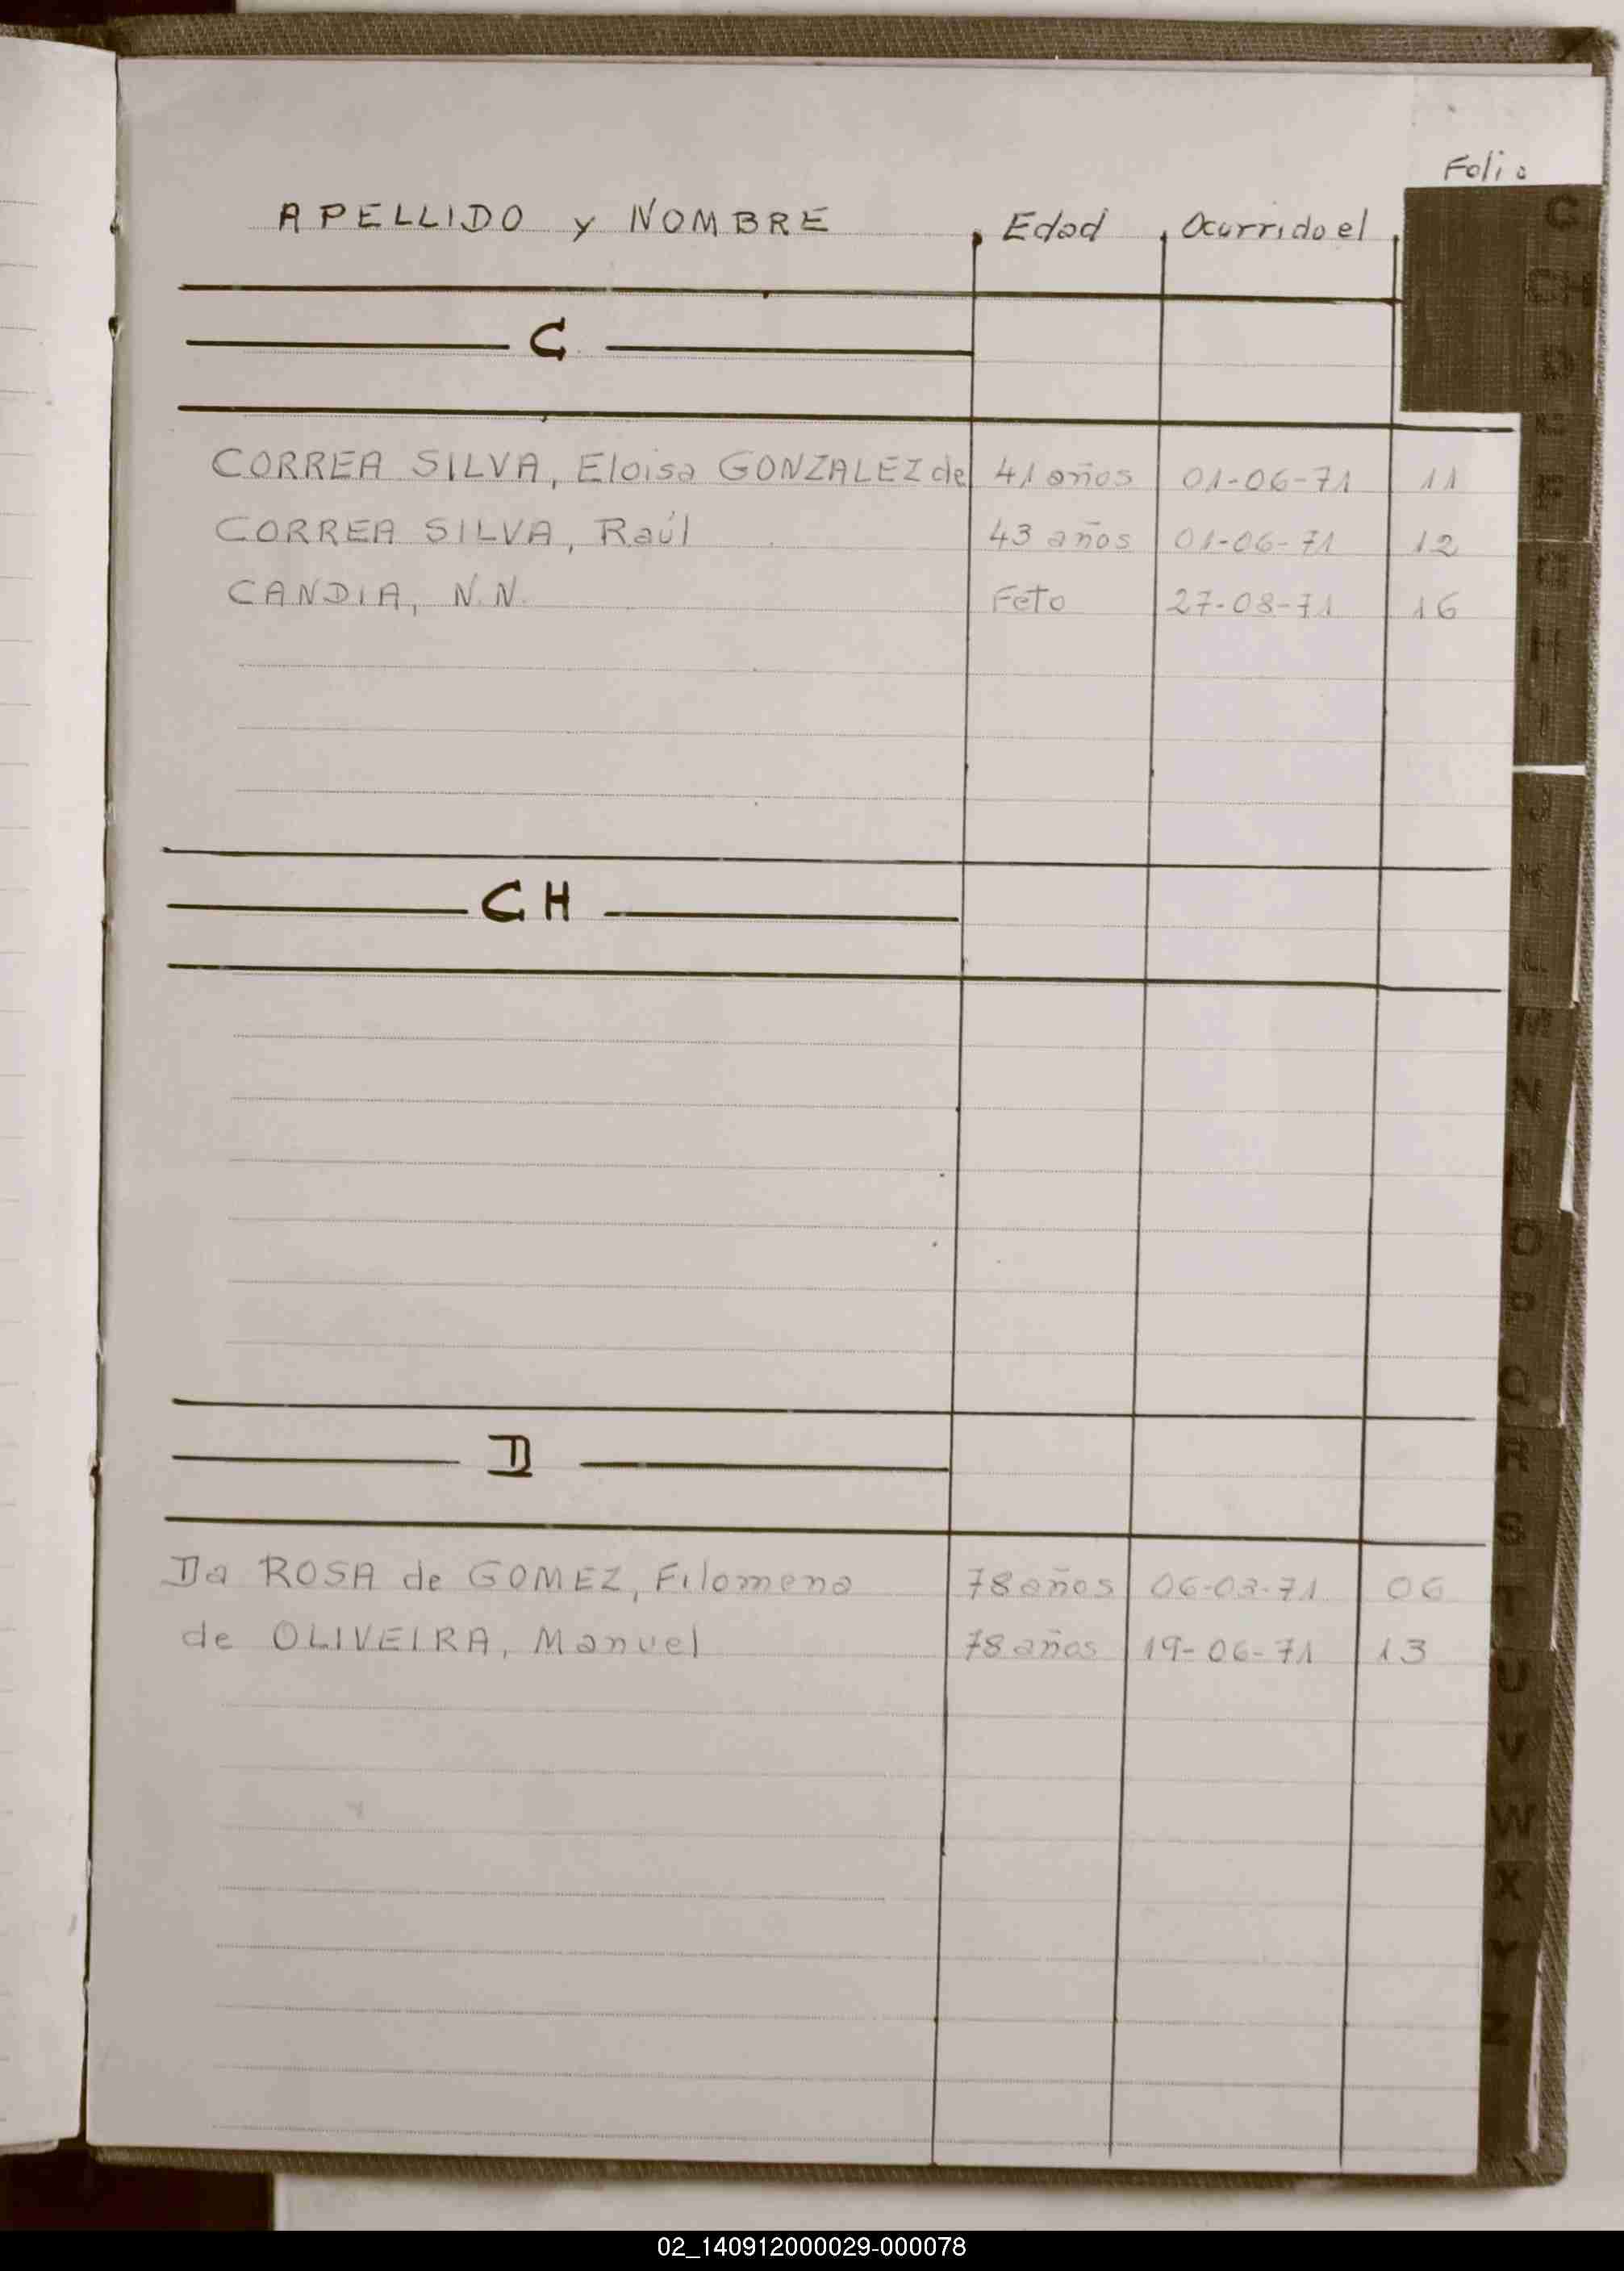 Folio
APELLIDO y NOMBRE Edad Ocurrido el
C
CORREA SILVA, Eloisa GONZALEZ de 41 años 01-06-71 11
CORREA SILVA, Raúl 43 años 01-06-71 12
CANDIA, N.N. Feto 27-08-71 16
CH
D
Da ROSA de GOMEZ, Filomena 78 años 06-03-71 06
de OLIVEIRA, Manuel 78 años 19-06-71 13
C
CH
D
E
F
G
H
I
J
K
L
M
N
Ñ
O
P
Q
R
S
T
U
V
W
X
Y
Z
02_140912000029-000078